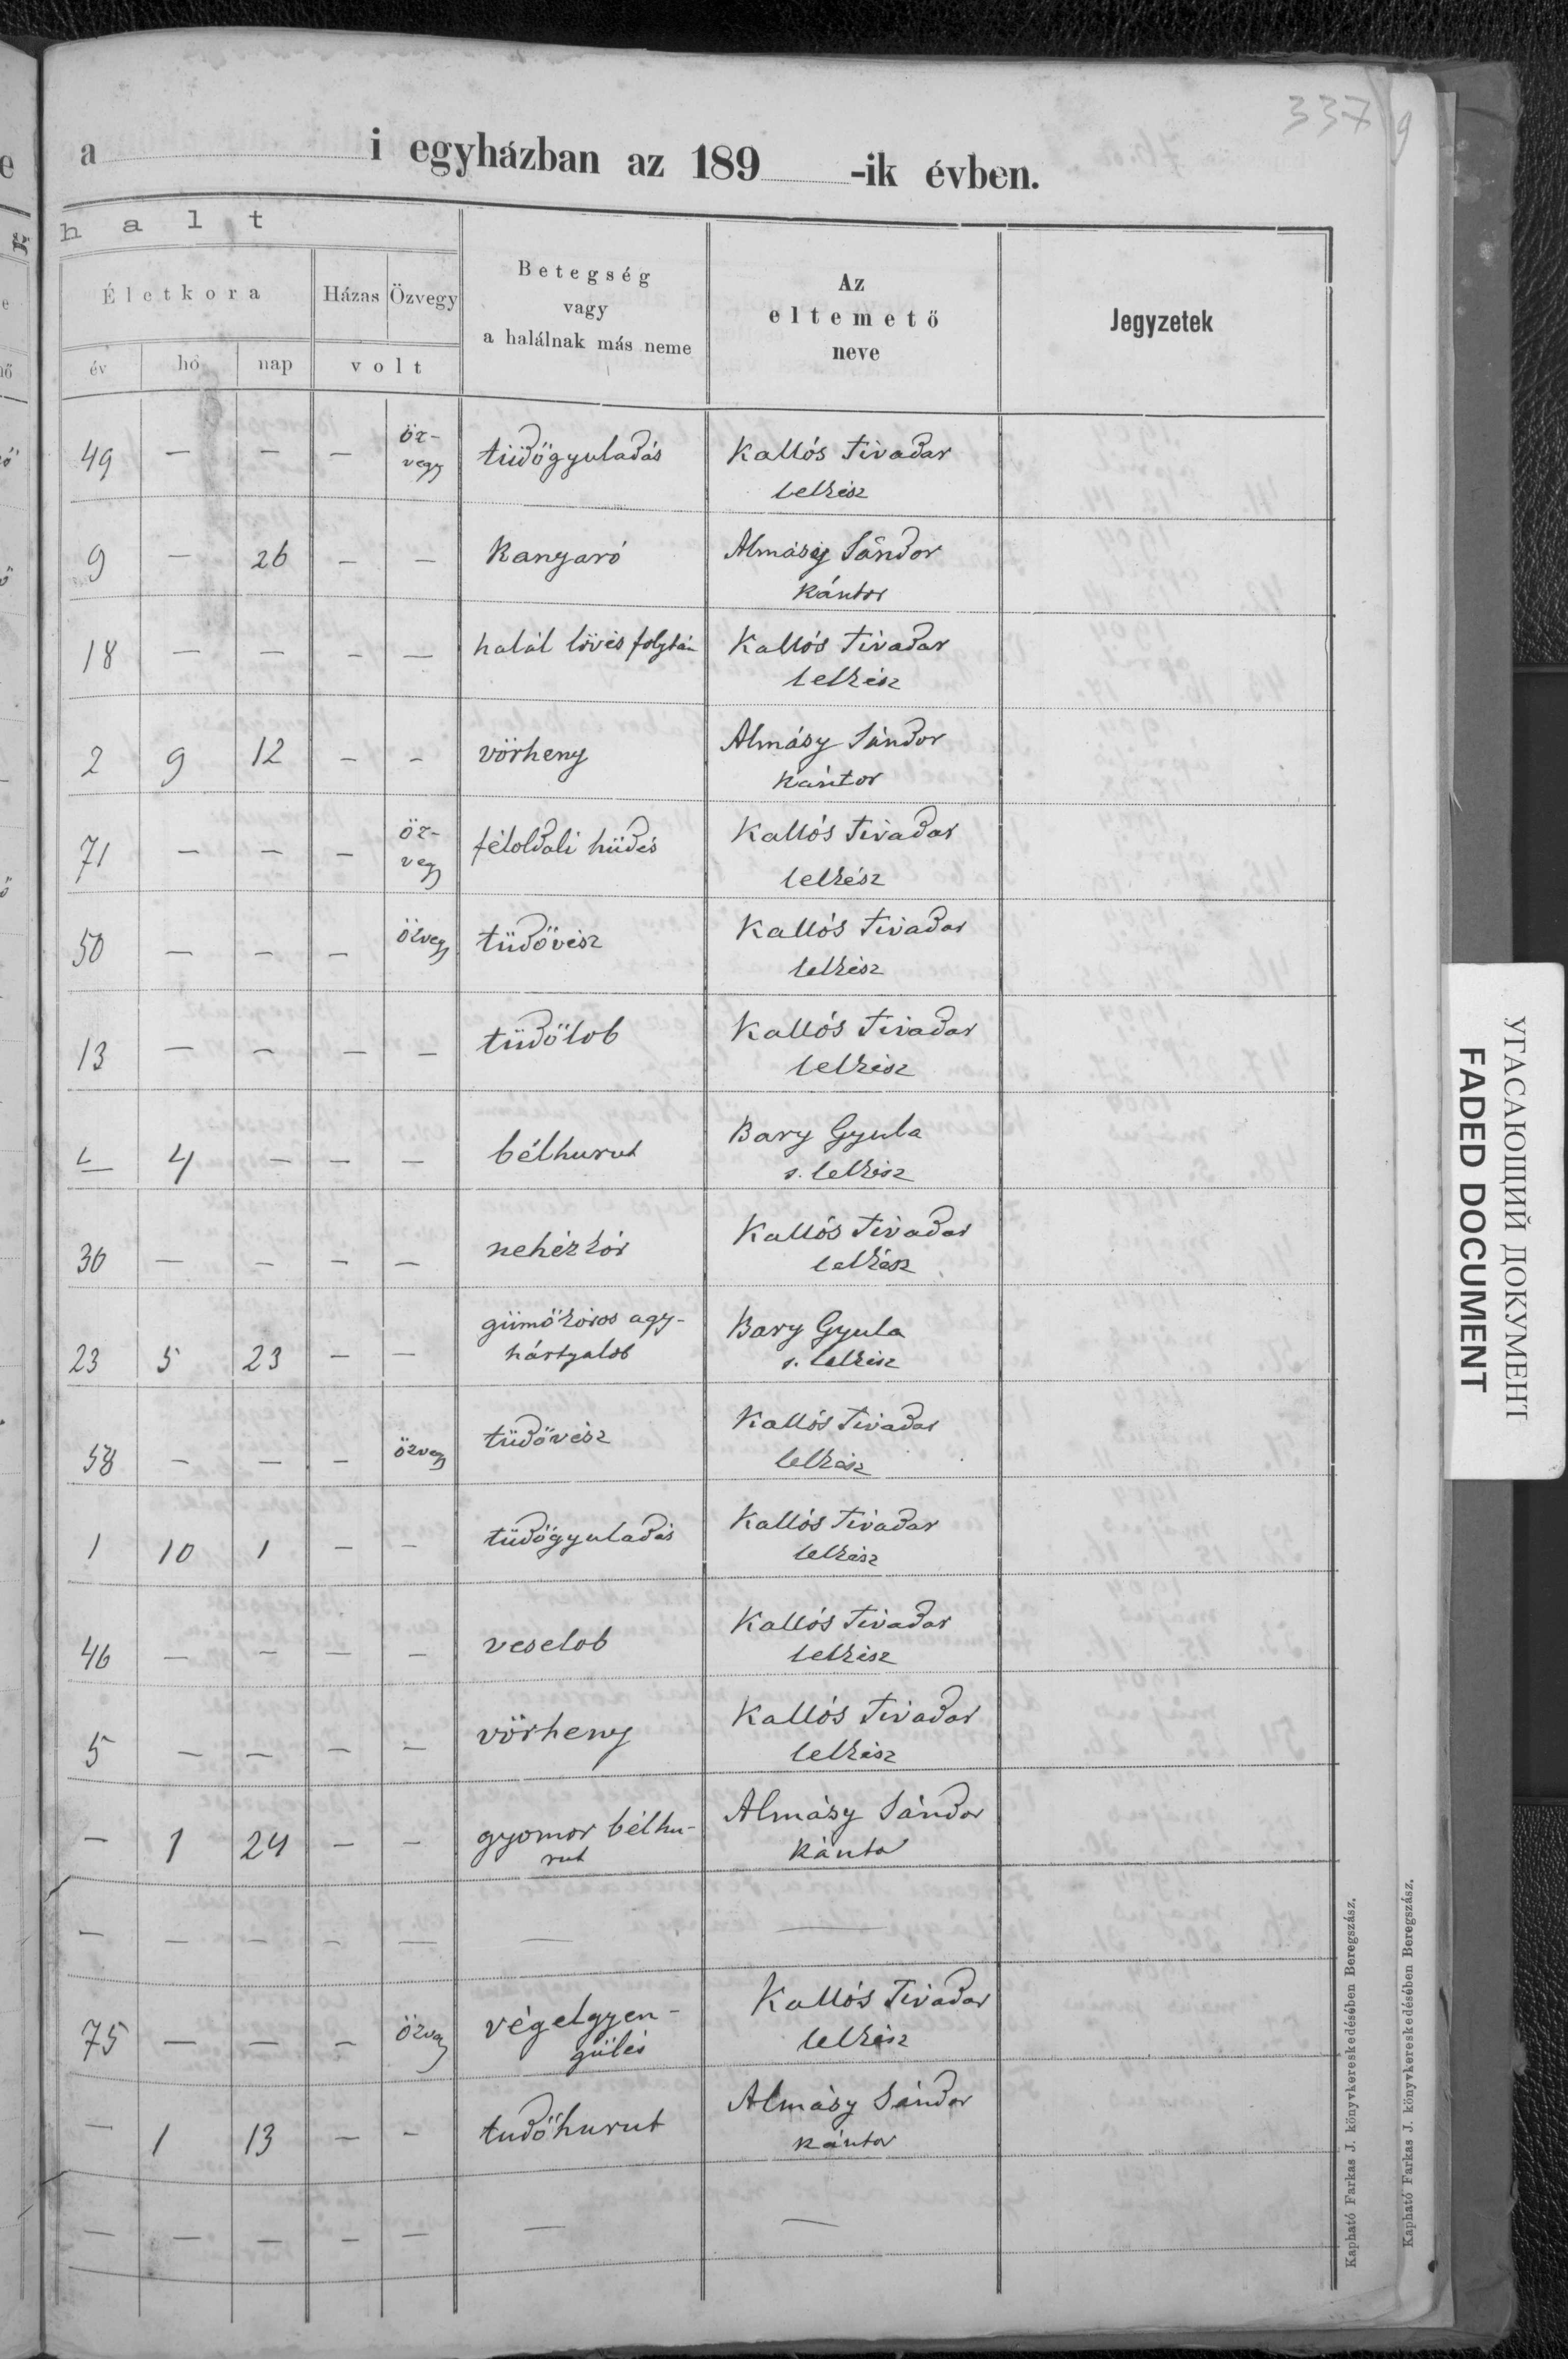 337
9
a i egyházban az 189 -ik évben.
h a l t
Életkora
Házas
Özvegy
Betegség
vagy
a halálnak más neme
Az
eltemető
neve
Jegyzetek
év
hó
nap
volt
49 — — — öz-
vegy
tüdőgyuladás
Kallós Tivadar
lelkész
9 — 26 — — Kanyaró
Almásy Sándor
kántor
18 — — — — halál lövés folytán
Kallós Tivadar
lelkész
2 9 12 — — vörheny
Almásy Sándor
kántor
71 — — — öz-
vegy
féloldali hüdés
Kallós Tivadar
lelkész
50 — — — özvegy tüdővész
Kallós Tivadar
lelkész
13 — — — — tüdőlob
Kallós Tivadar
lelkész
4 — — — bélhurut
Bary Gyula
s. lelkész
36 — — — — nehézkór
Kallós Tivadar
lelkész
23 5 23 — — gümőkóros agy-
hártyalob
Bary Gyula
s. lelkész
58 — — — özvegy tüdővész
Kallós Tivadar
lelkész
1 10 1 — — tüdőgyuladás
Kallós Tivadar
lelkész
46 — — — — veselob
Kallós Tivadar
lelkész
5 — — — — vörheny
Kallós Tivadar
lelkész
— 1 24 — — gyomor bélhu-
rut
Almásy Sándor
kántor
— — — — — — —
75 — — — özvegy végelgyen-
gülés
Kallós Tivadar
lelkész
— 1 13 — — tudőhurut
Almásy Sándor
kántor
— — — — — — —
Kapható Farkas J. könyvkereskedésében Beregszász.
Kapható Farkas J. könyvkereskedésében Beregszász.
УГАСАЮЩИЙ ДОКУМЕНТ
FADED DOCUMENT